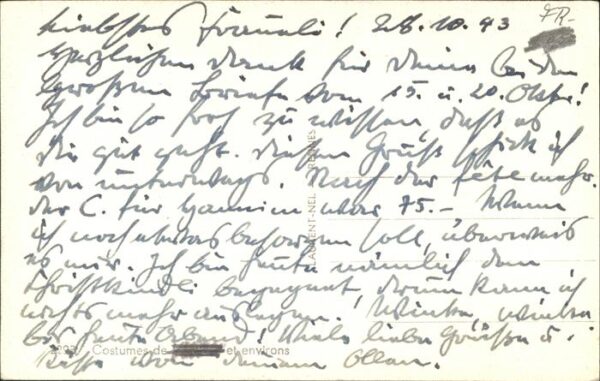 liebstes Fraueli! 28.10.43
FR.-
Herzlichen Dank für Deine beiden
grossen Briefe vom 15. u. 20. Oktbr!
Ich bin so froh zu wissen, daß es
Dir gut geht. Diesen Gruß schick ich
von unterwegs. Nach der
der C. für war 75.- Wenn
ich noch etwas besorgen soll, überweis
es mir. Ich bin heute nämlich dem
Christkindli begegnet, drum kann ich
nichts mehr auslegen! Winke, winke
bis heute Abend! Viele liebe Grüsse u.
Küsse von Deinem
LAURENT-NEL RENNES
Costumes de et environs